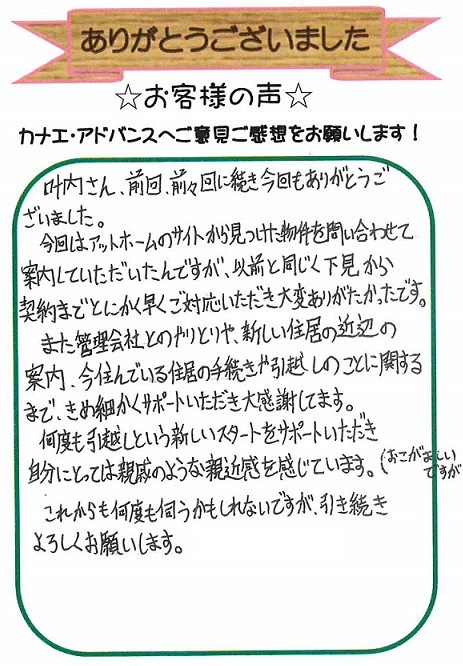 ありがとうございました
☆お客様の声☆
カナエ・アドバンスへご意見ご感想をお願いします!
叶内さん、前回、前々回に続き今回もありがとうご
ざいました。
今回はアットホームのサイトから見つけた物件を問い合わせて
案内していただいたんですが、以前と同じく下見から
契約までとにかく早くご対応いただき大変ありがたかったです。
また管理会社とのやりとりや、新しい住居の近辺の
案内、今住んでいる住居の手続きや引越しのことに関する
まで、きめ細かくサポートいただき大感謝してます。
何度も引越しという新しいスタートをサポートいただき
自分にとっては親戚のような親近感を感じています。(おこがましい
ですが
これからも何度も伺うかもしれないですが、引き続き
よろしくお願いします。